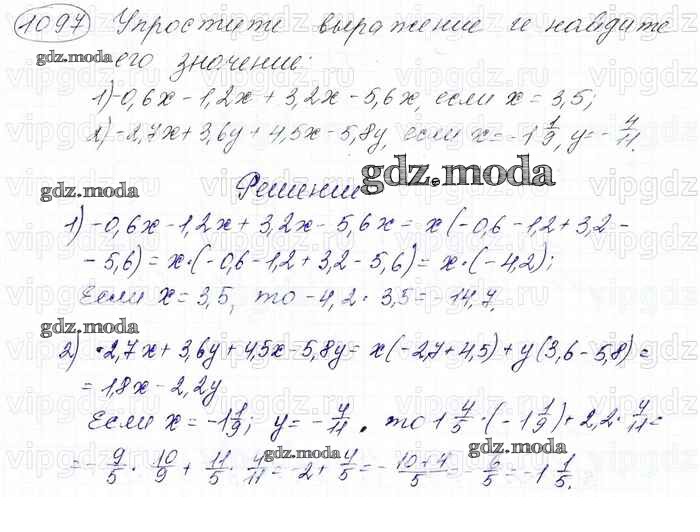 1097 Упростите выражение и найдите
gdz.moda его значение:
1) -0,6x - 1,2x + 3,2x - 5,6x, если x = 3,5;
2) -2,7x + 3,6y + 4,5x - 5,8y, если x = -1 1/9, y = -4/11.
gdz.moda Решение gdz.moda
1) -0,6x - 1,2x + 3,2x - 5,6x = x(-0,6 - 1,2 + 3,2 -
- 5,6) = x·(-0,6 - 1,2 + 3,2 - 5,6) = x·(-4,2);
Если x = 3,5, то -4,2 · 3,5 = -14,7.
gdz.moda gdz.moda
2) -2,7x + 3,6y + 4,5x - 5,8y = x(-2,7 + 4,5) + y(3,6 - 5,8) =
= 1,8x - 2,2y
Если x = -1 1/9; y = -4/11, то 1 4/5 · (-1 1/9) + 2,2 · 4/11 =
= -9/5 · 10/9 + 11/5 · 4/11 = -2 + 4/5 = -10+4/5 = -6/5 = -1 1/5.
gdz.moda gdz.moda